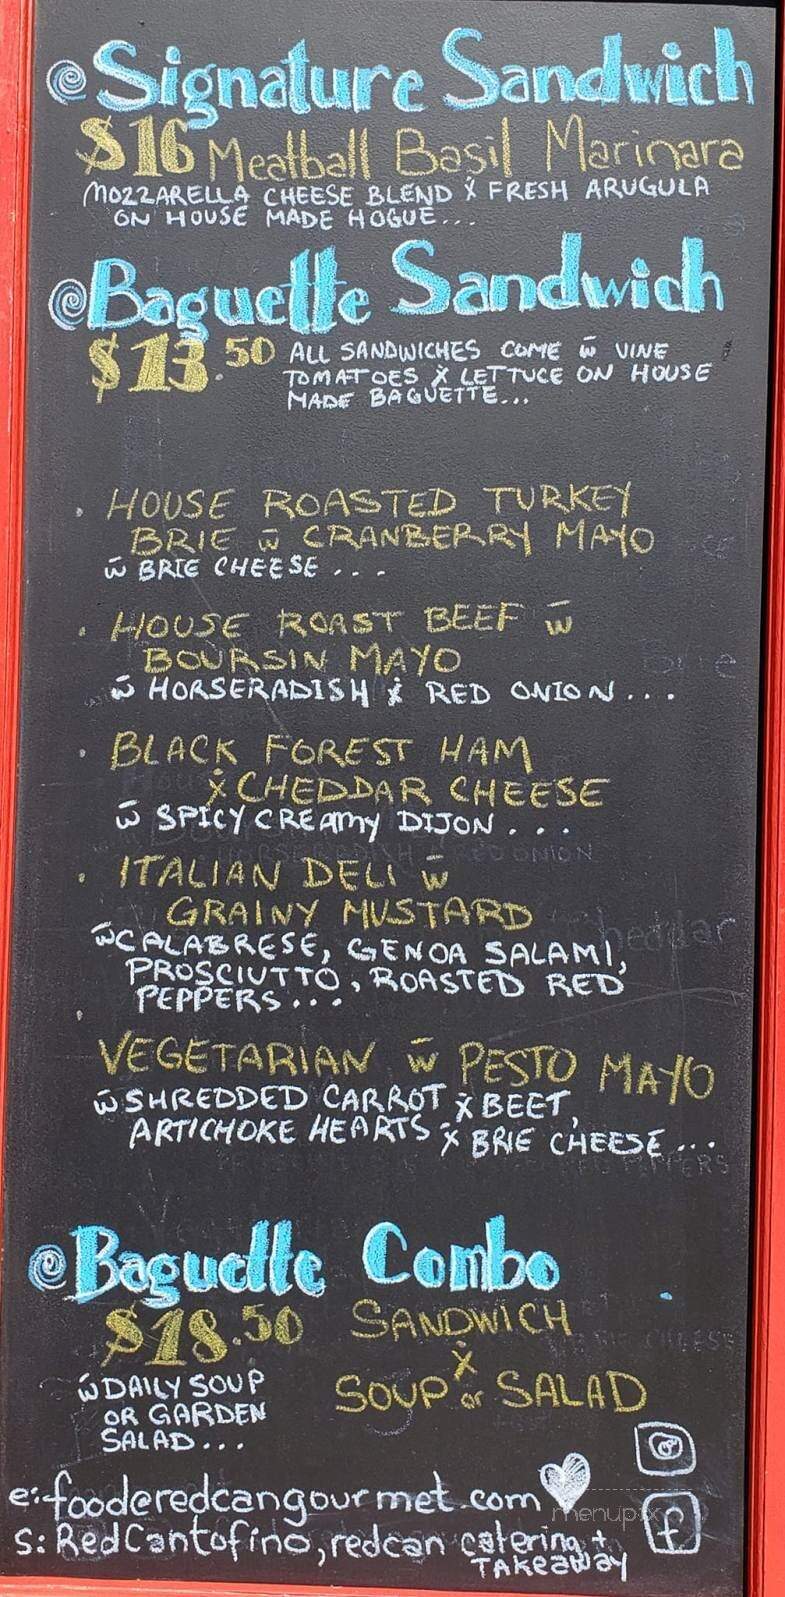 Signature Sandwich
$16 Meatball Basil Marinara
MOZZARELLA CHEESE BLEND & FRESH ARUGULA
ON HOUSE MADE HOGUE...
Baguette Sandwich
$13.50 ALL SANDWICHES COME w̄ VINE
TOMATOES & LETTUCE ON HOUSE
MADE BAGUETTE...
· HOUSE ROASTED TURKEY
BRIE w̄ CRANBERRY MAYO
w̄ BRIE CHEESE...
· HOUSE ROAST BEEF w̄
BOURSIN MAYO
w̄ HORSERADISH & RED ONION...
· BLACK FOREST HAM
& CHEDDAR CHEESE
w̄ SPICY CREAMY DIJON...
· ITALIAN DELI w̄
GRAINY MUSTARD
w̄ CALABRESE, GENOA SALAMI,
PROSCIUTTO, ROASTED RED
PEPPERS...
· VEGETARIAN w̄ PESTO MAYO
w̄ SHREDDED CARROT & BEET,
ARTICHOKE HEARTS & BRIE CHEESE...
Baguette Combo
$18.50 SANDWICH
&
SOUP or SALAD
w̄ DAILY SOUP
OR GARDEN
SALAD...
e: food@redcangourmet.com
menupix
s: RedCantofino, redcan catering +
TAKEAWAY